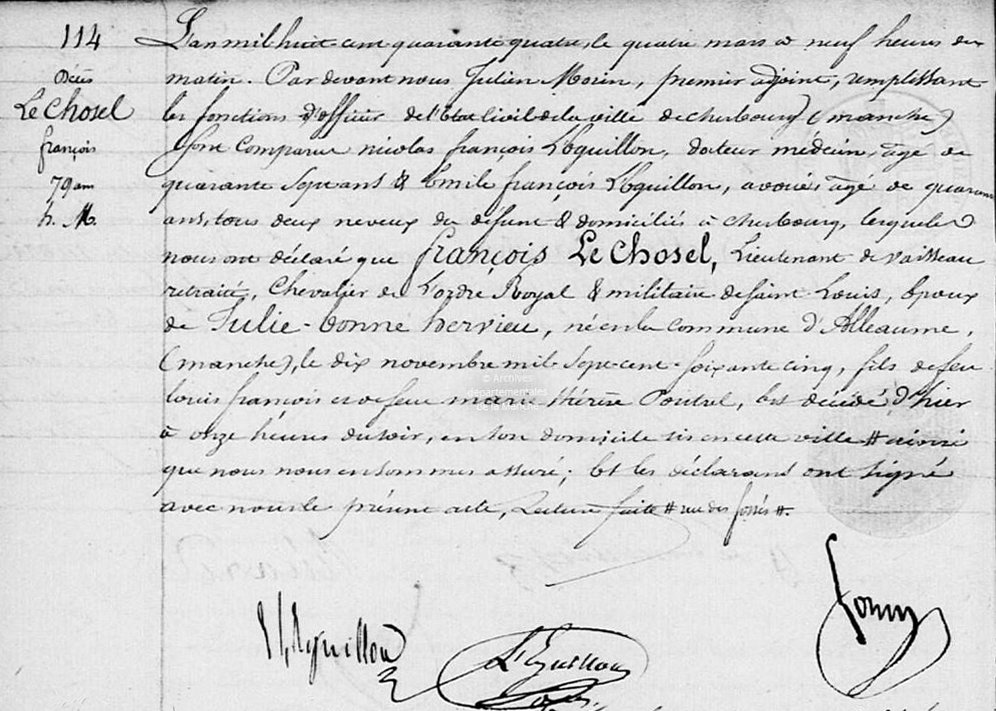 114
Décès
Le Chosel
françois
79 ans
h. M.
L'an mil huit cent quarante quatre, le quatre mars à neuf heures du
matin. Par devant nous Julien Morin, premier adjoint, remplissant
les fonctions d'officier de l'Etat Civil de la ville de cherbourg (manche)
sont Comparus nicolas françois L'éguillon, docteur médecin, âgé de
quarante Sept ans & Emile françois L'éguillon, avoué, âgé de quarante
ans, tous deux neveux du défunt & domiciliés à cherbourg, lesquels
nous ont déclaré que françois Le Chosel, Lieutenant de vaisseau
retraité, Chevalier de L'ordre Royal & militaire de saint-Louis, Epoux
de Julie-bonne hervieu, né en la Commune d'Alleaume,
(manche), le dix novembre mil Sept cent soixante cinq, fils de feu
louis françois et de feu marie thérèse Poutrel, Est décédé d'hier
à onze heures du soir, en son domicile sis en cette ville # ainsi
que nous nous en sommes assuré; Et les déclarans ont signé
avec nous le présent acte, Lecture faite # rue des fossés #.
© Archives
départementales
de la Manche
L'éguillon
L'Eguillon